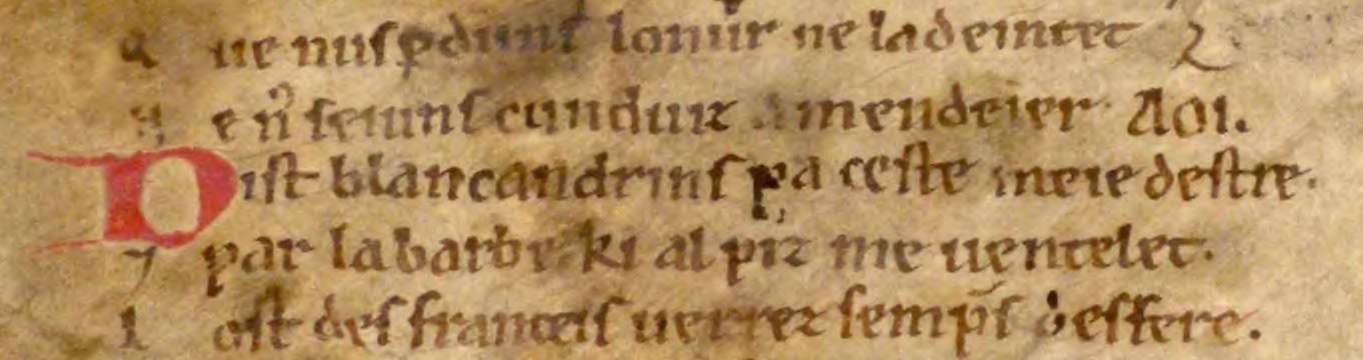 q ue nus pduns lonur ne la deintet 
N e nſ seiuns cunduiz a mendeier. Aoi.
Dist blancandrins pa ceste meie destre.
⁊ par la barbe ki al piz me uentelet.
L ost des franceis uerrez semps desfere.